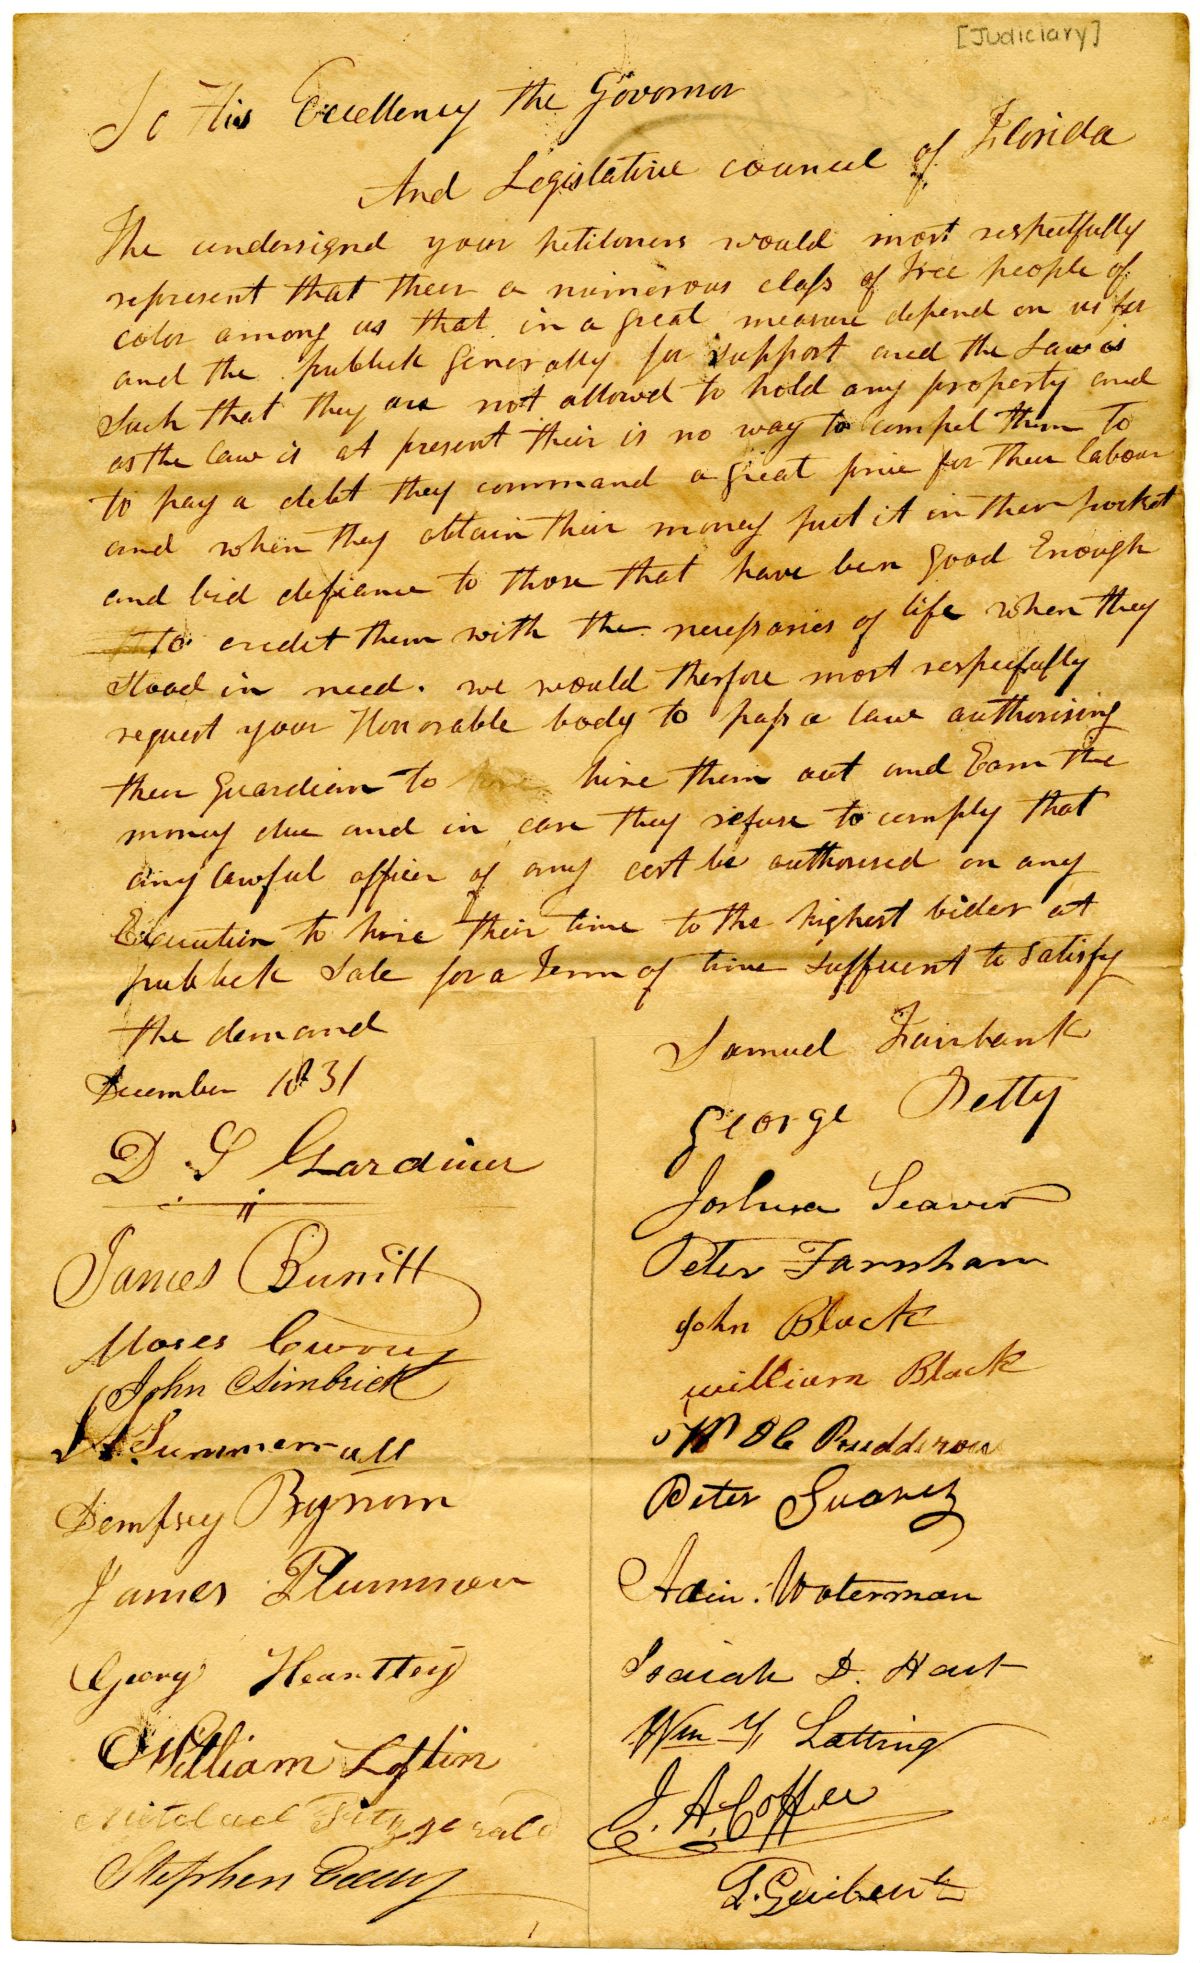 [Judiciary]
To His Excellency the Governor
And Legislative council of Florida
The undersignd your petitioners would most respectfully
represent that their a numerous class of Free people of
color among us that in a great measure depend on us for
and the publick generally for support and the Law is
Such that they are not allowd to hold any property and
as the law is at present their is no way to compel them to
to pay a debt they command a great price for their labour
and when they obtain their money put it in their pocket
and bid defiance to those that have ben good Enough
to credit them with the necessaries of life when they
Stood in need. we would therfore most respecfully
request your Honorable body to pass a law authorising
their guardian to hire them out and Earn the
money due and in case they refuse to comply that
any lawful officer of any cort be authorised on any
Execution to hire their time to the highest bider at
publick Sale for a Term of time sufficent to satisfy
the demand
December 1831
D. S Gardiner
James Burritt
Moses Curry
John Simbrick
Summerall
Dempsey Bynom
James Plummer
Georg Heartley
William Loftin
Mitchael Fitzgerald
Stephen Eddy
Samuel Fairbank
George Petty
Joshua Seaver
Peter Farnham
John Black
William Black
Peter Suarez
Adin. Waterman
Isaiah D. Hart
Wm Y. Latting
J. A. Coffee